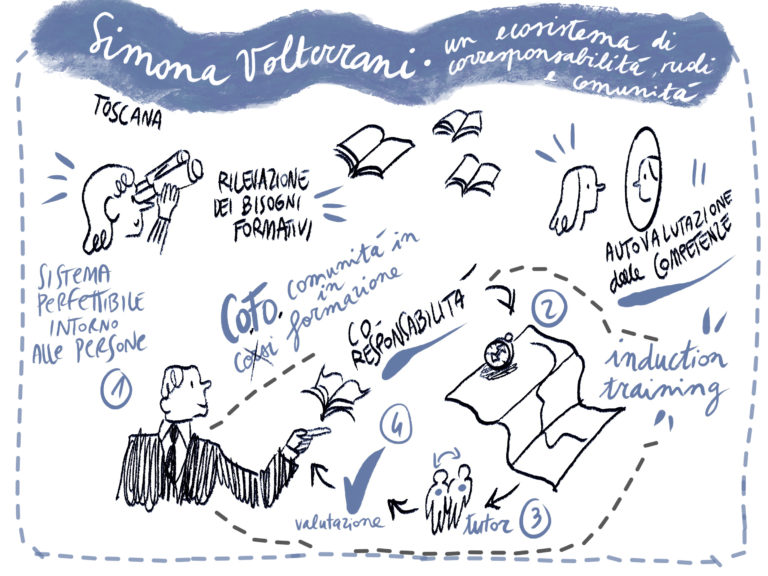 Simona Volterrani • un ecosistema di
corresponsabilità, ruoli
e comunità
TOSCANA
RILEVAZIONE
DEI BISOGNI
FORMATIVI
AUTOVALUTAZIONE
delle COMPETENZE
SISTEMA
PERFETTIBILE
INTORNO
ALLE PERSONE
CO.FO. comunità in
in
formazione
CO-
RESPONSABILITÁ
1
2
induction
training
4
valutazione
tutor 3